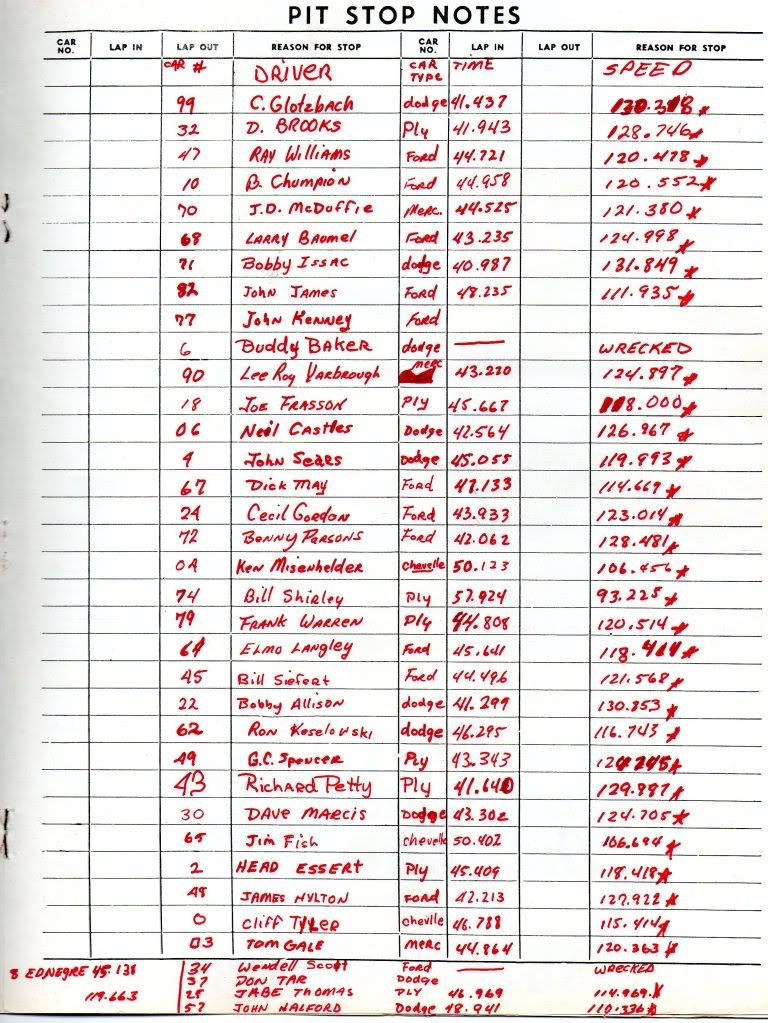 PIT STOP NOTES
CAR NO. LAP IN LAP OUT REASON FOR STOP CAR NO. LAP IN LAP OUT REASON FOR STOP
CAR # DRIVER CAR TYPE TIME SPEED
99 C. Glotzbach dodge 41.437 130.318
32 D. BROOKS Ply 41.943 128.746
47 RAY WILLIAMS Ford 44.721 120.478
10 B. Chumpion Ford 44.958 120.552
70 J.D. McDuffie Merc. 44.525 121.380
68 LARRY BAUMEL Ford 43.235 124.998
71 Bobby ISSAC dodge 40.987 131.849
82 John James Ford 48.235 111.935
77 John Kenney Ford
6 Buddy BAKER dodge — WRECKED
90 Lee Roy Yarbrough merc 43.220 124.897
18 JOE FRASSON Ply 45.667 118.000
06 Neil Castles Dodge 42.564 126.967
4 John Sears Dodge 45.055 119.993
67 Dick MAY Ford 47.133 114.669
24 Cecil Gordon Ford 43.933 123.014
72 BENNY PERSONS Ford 42.062 128.481
0A KEN Misenhelder chevelle 50.123 106.456
74 Bill Shirley Ply 57.924 93.225
79 FRANK WARREN Ply 44.808 120.514
64 ELMO LANGLEY Ford 45.641 118.464
45 Bill Siefert Ford 44.496 121.568
22 Bobby Allison dodge 41.299 130.853
62 RON Keselowski dodge 46.295 116.743
49 G.C. Spencer Ply 43.343 124.245
43 Richard Petty Ply 41.640 129.887
30 DAVE MARCIS Dodge 43.302 124.705
65 Jim Fish chevelle 50.402 106.694
2 HEAD ESSERT Ply 45.409 118.418
48 JAMES HYLTON FORD 42.213 127.922
0 Cliff TYLER chevlle 46.788 115.414
03 TOM GALE MERC 44.864 120.363
8 ED NEGRE 45.138 34 Wendell Scott Ford — WRECKED
37 DON TAR Dodge
119.663 25 JABE THOMAS PLY 46.969 114.969
57 JOHN HALFORD Dodge 48.941 110.336